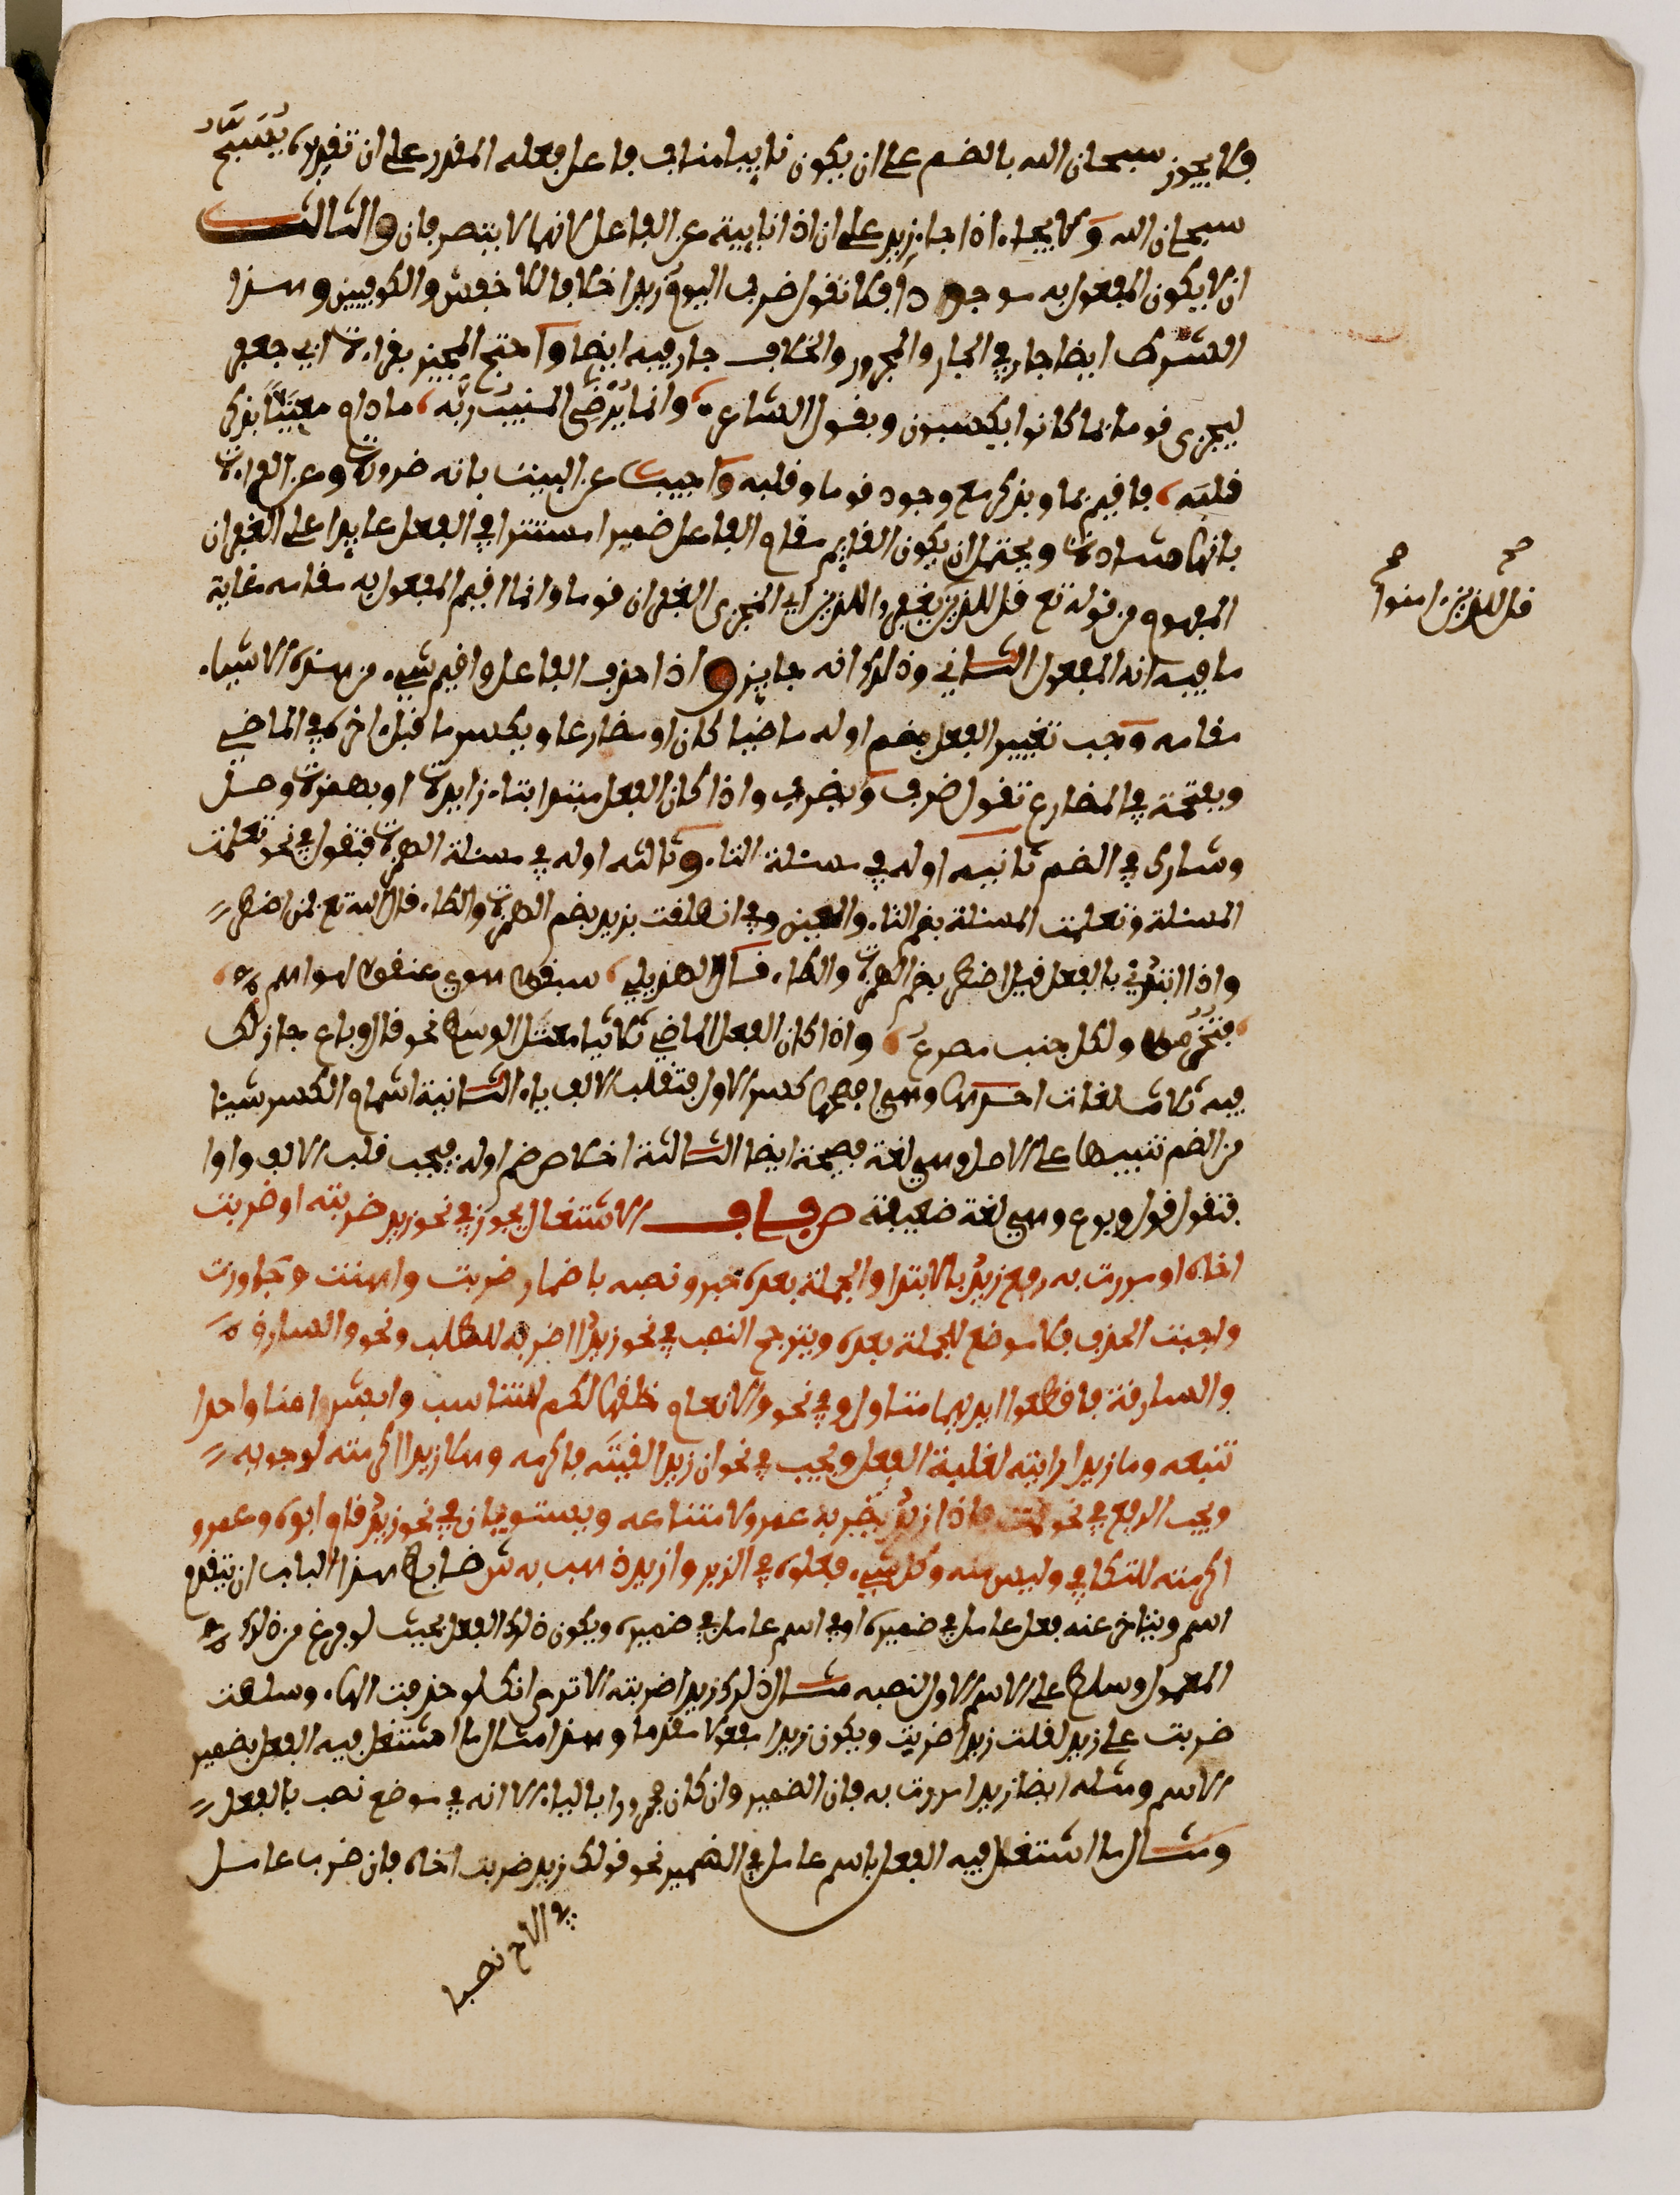 فلا يجوز سبحان الله بالضم على ان يكون نايبا مناب فاعل فعله المقدر على ان تقديره يُسَبَّحُ
سبحان الله ولا يجاء اذا جاء زيد على ان اذا نايبة عن الفاعل لانهما لا يتصرفان والثالث
ان لا يكون المفعول به موجودا فلا تقول ضرب اليومُ زيدا خلافا للاخفش والكوفيين وهذا
الشرط ايضا جار في الجار والمجرور والخلاف جار فيه ايضا واحتج المجيز بقراءة ابي جعفر
ليجزى قوما بما كانوا يكسبون وبقول الشاعر وانما يُرْضِي المنيبُ ربَّه ما دام معنيًّا بذكر
قلبَه فاقيم بما وبذكر مع وجود قوما وقلبه واجيب عن البيت بانه ضرورة وعن القراءة
بانها شاذة ويحتمل ان يكون القايم مقام الفاعل ضميرا مستترا في الفعل عايدا على الغفران
المفهوم من قوله تع قل للذين يغفروا للذين اي ليجزى الغفران قوما وانما اقيم المفعول به مقامه غاية
ما فيه انه المفعول الثاني وذلك انه جايز واذا حذف الفاعل واقيم شيء من هذه الاشياء
مقامه وجب تغيير الفعل بضم اوله ماضيا كان او مضارعا وبكسر ما قبل اخره في الماضي
وبفتحه في المضارع تقول ضرب ويضرب واذا كان الفعل مبتدا بتاء زايدة او بهمزة وصل
وشارك في الضم ثانيه اوله في مسئلة التاء وثالثه اوله في مسئلة الهمزة فتقول في نحو تعلمت
المسئلة وتعلمت المسئلة بضم التاء والعين وفي انطلقت بزيد بضم الهمزة والطاء قال الله تع فمن اضطر
واذا ابتدئ بالفعل قيل اضطر بضم الهمزة والطاء قال الهذيلي سبقوا هوي واعنقوا لهواهم
فتخرموا ولكل جنب مصرع واذا كان الفعل الماضي ثلاثيا معتل الوسط نحو قال وباع جاز لك
فيه ثلاث لغات احدىها وهي افصحها كسر الاول فتقلب الالف ياء الثانية اشمام الكسر شيئا
من الضم تنبيها على الاصل وهي لغة فصيحة ايضا الثالثة اخلاص ضم اوله فيجب قلب الالف واوا
فتقول قول وبوع وهي لغة ضعيفة ص باب الاشتغال يجوز في نحو زيد ضربته او ضربت
اخاه او مررت به رفع زيد بالابتدا والجملة بعده خبر ونصبه باضمار ضربت واهنت وجاوزت
واجبت الحذف فلا موضع للجملة بعده ويترجح النصب في نحو زيدا اضربه للطلب ونحو والسارق
والسارقة فاقطعوا ايديهما متاول وفي نحو والانعام خلقها لكم للتناسب وابشرا منا واحدا
نتبعه وما زيدا رايته لغلبة الفعل ويجب في نحو ان زيدا لقيته فاكرمه وهلا زيدا اكرمته لوجوبه
ويجب الرفع في نحو خرجت فاذا زيد يضربه عمرو لامتناعه ويستويان في نحو زيد قام ابوه وعمرو
اكرمته للتكافي وليس منه وكل شيء فعلوه في الزبر وازيد ذهب به ش ضابط هذا الباب ان يتقدم
اسم ويتاخر عنه فعل عامل في ضميره او في اسم عامل في ضميره ويكون ذلك الفعل بحيث لو فرغ من ذلك
المعمول وسلط على الاسم الاول لنصبه مثال ذلك زيدا ضربته الا ترى انك لو حذفت الهاء وسلطت
ضربت على زيد لقلت زيدا ضربت ويكون زيدا مفعولا مقدما وهذا مثال ما اشتغل فيه الفعل بضمير
الاسم ومثله ايضا زيدا مررت به فان الضمير وان كان مجرورا بالباء الا انه في موضع نصب بالفعل
ومثال ما اشتغل فيه الفعل باسم عامل في الضمير نحو قولك زيد ضربت اخاه فان ضرب عامل
في الاخ نصبا
صح صح
قل للذين امنوا